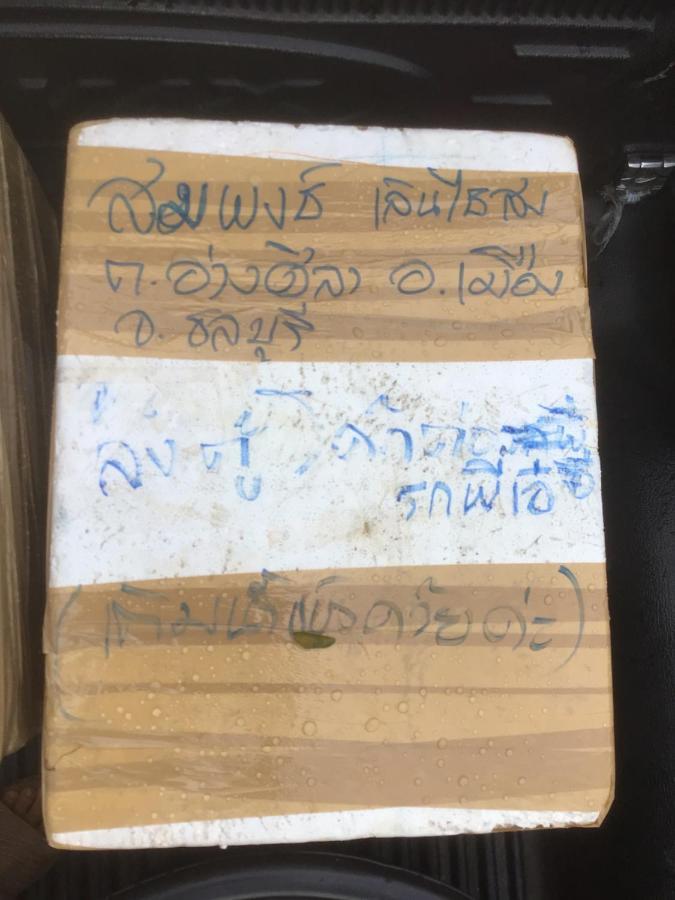 สมพงธ์ เลินไธสง
ต.อ่างศิลา อ.เมือง
จ.ชลบุรี
ลุง ตู้
รถพี่เอ๋
(เติมน้ำแข็งด้วยค่ะ)